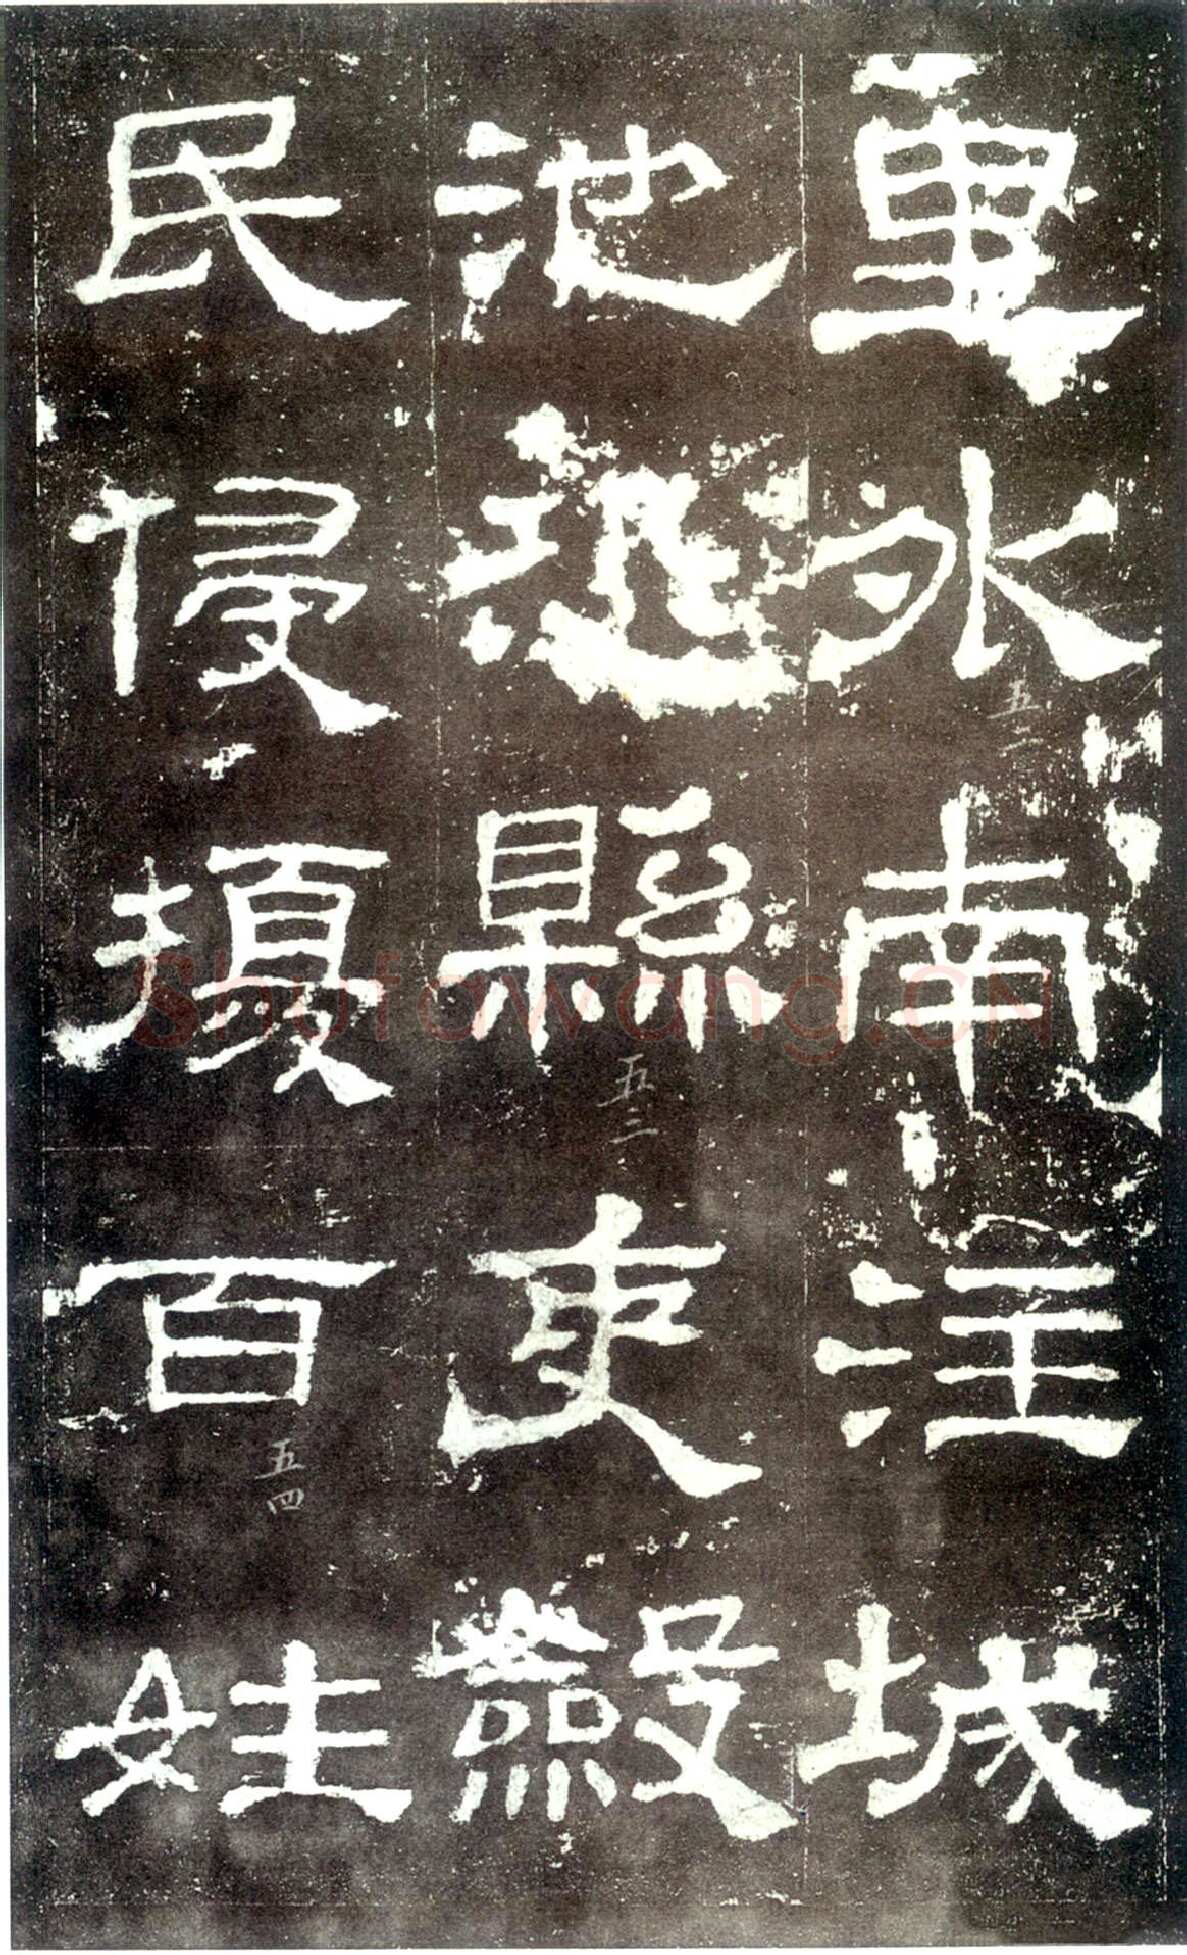 里外南注城
池恐縣吏斂
民侵擾百姓
五二
五三
五四
Shufawang.CN